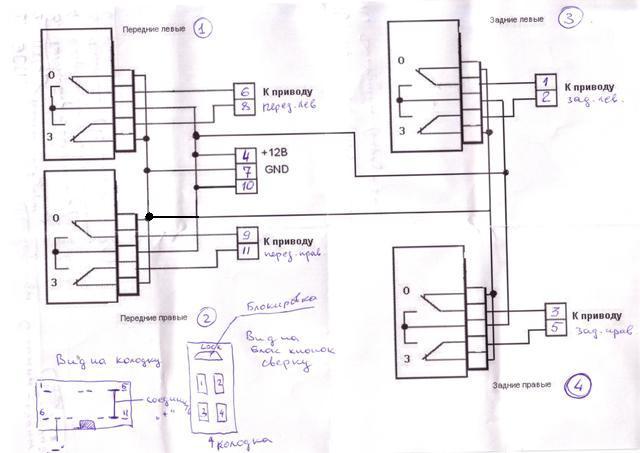 Передние левые 1
0
3
6
8
К приводу
перед. лев
4 +12В
7 GND
10
0
3
9
11
К приводу
перед. прав
Передние правые 2
Задние левые 3
0
3
1
2
К приводу
зад. лев.
0
3
3
5
К приводу
зад. прав
Задние правые 4
Вид на колодку
1
5
6
11
соедин.
"+"
"-"
Блокировка
LOCK
1 2
3 4
Вид на
блок кнопок
сверху
колодка